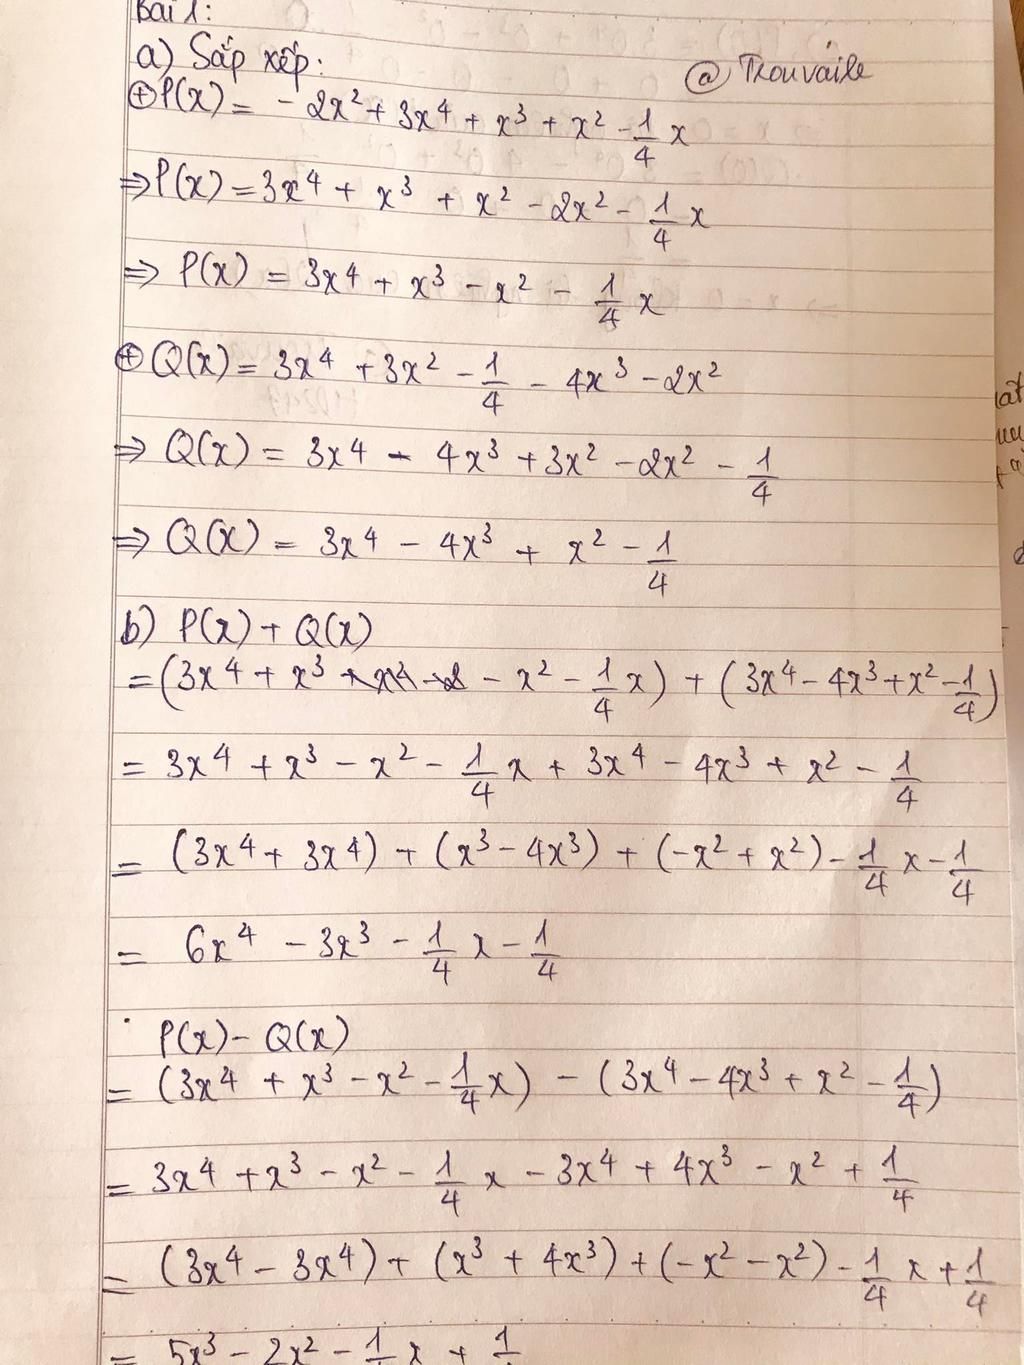 Bài 1:
a) Sắp xếp:
@ Trouvaile
⊕ P(x) = - 2x² + 3x⁴ + x³ + x² - 1/4 x
⇒ P(x) = 3x⁴ + x³ + x² - 2x² - 1/4 x
⇒ P(x) = 3x⁴ + x³ - x² - 1/4 x
⊕ Q(x) = 3x⁴ + 3x² - 1/4 - 4x³ - 2x²
⇒ Q(x) = 3x⁴ - 4x³ + 3x² - 2x² - 1/4
⇒ Q(x) = 3x⁴ - 4x³ + x² - 1/4
b) P(x) + Q(x)
= (3x⁴ + x³ - x² - 1/4 x) + (3x⁴ - 4x³ + x² - 1/4)
= 3x⁴ + x³ - x² - 1/4 x + 3x⁴ - 4x³ + x² - 1/4
= (3x⁴ + 3x⁴) + (x³ - 4x³) + (-x² + x²) - 1/4 x - 1/4
= 6x⁴ - 3x³ - 1/4 x - 1/4
P(x) - Q(x)
= (3x⁴ + x³ - x² - 1/4 x) - (3x⁴ - 4x³ + x² - 1/4)
= 3x⁴ + x³ - x² - 1/4 x - 3x⁴ + 4x³ - x² + 1/4
= (3x⁴ - 3x⁴) + (x³ + 4x³) + (-x² - x²) - 1/4 x + 1/4
= 5x³ - 2x² - 1/4 x + 1/4